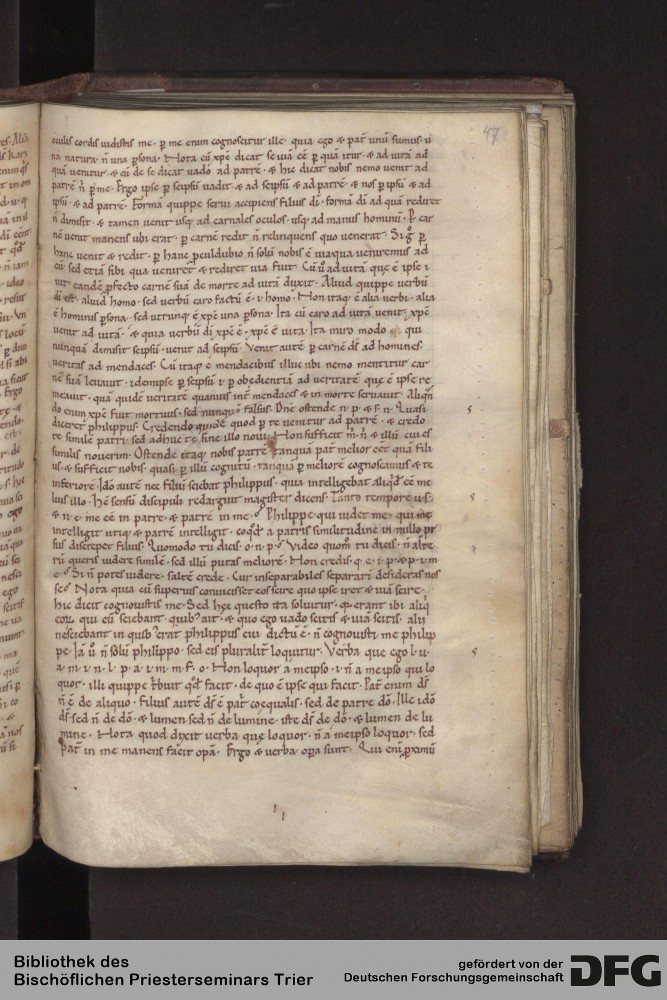 47
oculis cordis uidistis me · ꝑ me enim cognoscitur ille · quia ego & pat̄ unū sumus · u
na natura · n̄ una ꝑsona · Nota cū xp̄c dicat se uiā cē ꝑ quā itur · & ad uitā ad
quā uenitur · & cū de se dicat uado ad patrē · & hic dicat nobis nemo uenit ad
patrē n̄ ꝑ me · Ergo ipse ꝑ seipsū uadit · & ad seipsū & ad patrē · & nos ꝑ ipsū & ad
ipsū · & ad patrē · Formā quippe serui accipiens filius dī · formā dī ad quā rediret
n̄ dimisit · & tamen uenit usq; ad carnales oculos · usq; ad manus hominū · Ꝑ car
nē uenit manens ubi erat · ꝑ carnē redit n̄ relinquens quo uenerat · Si gͦ ꝑ
hanc uenit & redit · ꝑ hanc ꝓculdubio n̄ solū nobis ē uia qua ueniremus ad
eū · sed etiā sibi qua ueniret & rediret uia fuit · Cū ū ad uitā que ē ipse i
uit · eandē ꝓfecto carnē suā de morte ad uitā duxit · Aliud quippe uerbū
dī est · aliud homo · sed uerbū caro factū ē · i · homo · Non itaq; ē alia uerbi · alia
ē hominis ꝑsona · sed utrunq; ē xp̄c una ꝑsona · Ita cū caro ad uitā uenit · xp̄c
uenit ad uitā · & quia uerbū dī xp̄c ē · xp̄c ē uita · Ita miro modo qui
nunquā dimisit seipsū · uenit ad seipsū · Venit autē ꝑ carnē ds̄ ad homines ·
ueritas ad mendaces · Cū itaq; e mendacibus illuc ubi nemo mentitur car
nē suā leuauit · idemipse ꝑ seipsū · i · ꝑ obedientiā ad ueritatē quę ē ipse re
meauit · quā quidē ueritatē quamuis int̄ mendaces & in morte seruauit · Aliqn̄
do enim xp̄c fuit mortuus · sed nunquā falsus · Dn̄e ostende n · p · & s · n · Quasi
diceret philippus · Credendo quidē quod ꝑ te uenitur ad patrē · & credo
te similē patri · sed adhuc te sine illo noui · Non sufficit m̄ · n̄ & illū cui es
similis nouerim · Ostende itaq; nobis patrē · tanquā pat̄ melior eēt quā fili
us · & sufficit nobis · quasi ꝑ illū cognitū · tanquā ꝑ meliorē cognoscamus & te
inferiorē · Ido autē nec filiū sciebat philippus · quia intelligebat aliqd̄ eē me
lius illo · Hc̄ sensū discipuli redarguit magister dicens · Tanto tempore u · s ·
& n · e · me eē in patre · & patrē in me · Philippe · qui uidet me · qui me
intelligit utiq; & patrē intelligit · eo qd̄ a patris similitudine in nullo pr̄
sus discrepet filius · Quomodo tu dicis · o · n · p · Video quom̄ tu dicis · n̄ alte
rū queris uidere similē · sed illū putas meliorē · Non credis · q · e · i · p · & p · i · m
e · Si n̄ potes uidere · saltē crede · Cur inseparabiles separari desideras nos
sēs · Nota quia cū superius conuicisset eos scire quo ipse iret & uiā scire ·
hic dicit cognouistis me · Sed hęc questo ita soluitur · qͣ erant ibi aliq̄
eorū qui eū sciebant · quibꝰ ait · & quo ego uado scitis & uiā scitis · alii
nesciebant in quibꝰ erat philippus cui dictū ē · n̄ cognouisti me philip
pe · Iā ū n̄ solū philippo · sed eis pluralit̄ loquitur · Verba que ego l · u ·
a · m · i · n · l · p · a · i · m · m · f · o · Non loquor a meipso · i · n̄ a me ipso qui lo
quor · illi quippe t̄buit qd̄ facit · de quo ē ipse qui facit · Pat̄ enim ds̄
n̄ ē de aliquo · Filius autē ds̄ ē pat̄ coequalis · sed de patre dō · Ille idō
ds̄ sed n̄ de dō · & lumen sed n̄ de lumine · iste ds̄ de dō · & lumen de lu
mine · Nota quod dixit uerba quę loquor · n̄ a meipso loquor · sed
pat̄ in me manens facit opā · Ergo & uerba · opa sunt · Qui enī ꝓximū
Bibliothek des
Bischöflichen Priesterseminars Trier
gefördert von der
Deutschen Forschungsgemeinschaft
DFG